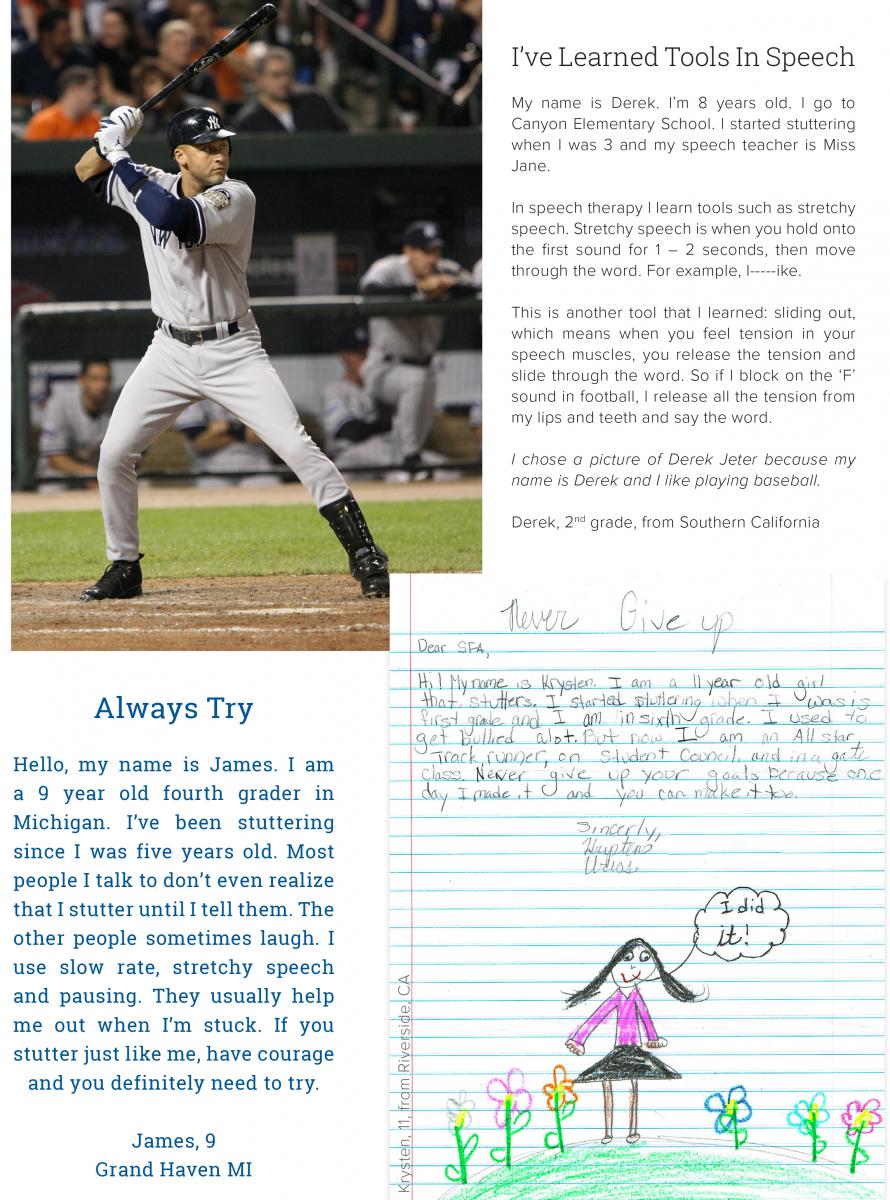 I've Learned Tools In Speech
My name is Derek. I'm 8 years old. I go to
Canyon Elementary School. I started stuttering
when I was 3 and my speech teacher is Miss
Jane.
In speech therapy I learn tools such as stretchy
speech. Stretchy speech is when you hold onto
the first sound for 1 – 2 seconds, then move
through the word. For example, l-----ike.
This is another tool that I learned: sliding out,
which means when you feel tension in your
speech muscles, you release the tension and
slide through the word. So if I block on the ‘F’
sound in football, I release all the tension from
my lips and teeth and say the word.
I chose a picture of Derek Jeter because my
name is Derek and I like playing baseball.
Derek, 2nd grade, from Southern California
Never Give up
Dear SFA,
Hi! My name is Krysten. I am a 11 year old girl
that stutters. I started stuttering when I was is
first grade and I am in sixth grade. I used to
get bullied alot. But now I am an All star,
Track runner, on Student Council, and in a gate
class. Never give up your goals because one
day I made it and you can make it too.
Sincerly,
Krysten
I did
it!
Krysten, 11, from Riverside, CA
Always Try
Hello, my name is James. I am
a 9 year old fourth grader in
Michigan. I've been stuttering
since I was five years old. Most
people I talk to don't even realize
that I stutter until I tell them. The
other people sometimes laugh. I
use slow rate, stretchy speech
and pausing. They usually help
me out when I'm stuck. If you
stutter just like me, have courage
and you definitely need to try.
James, 9
Grand Haven MI